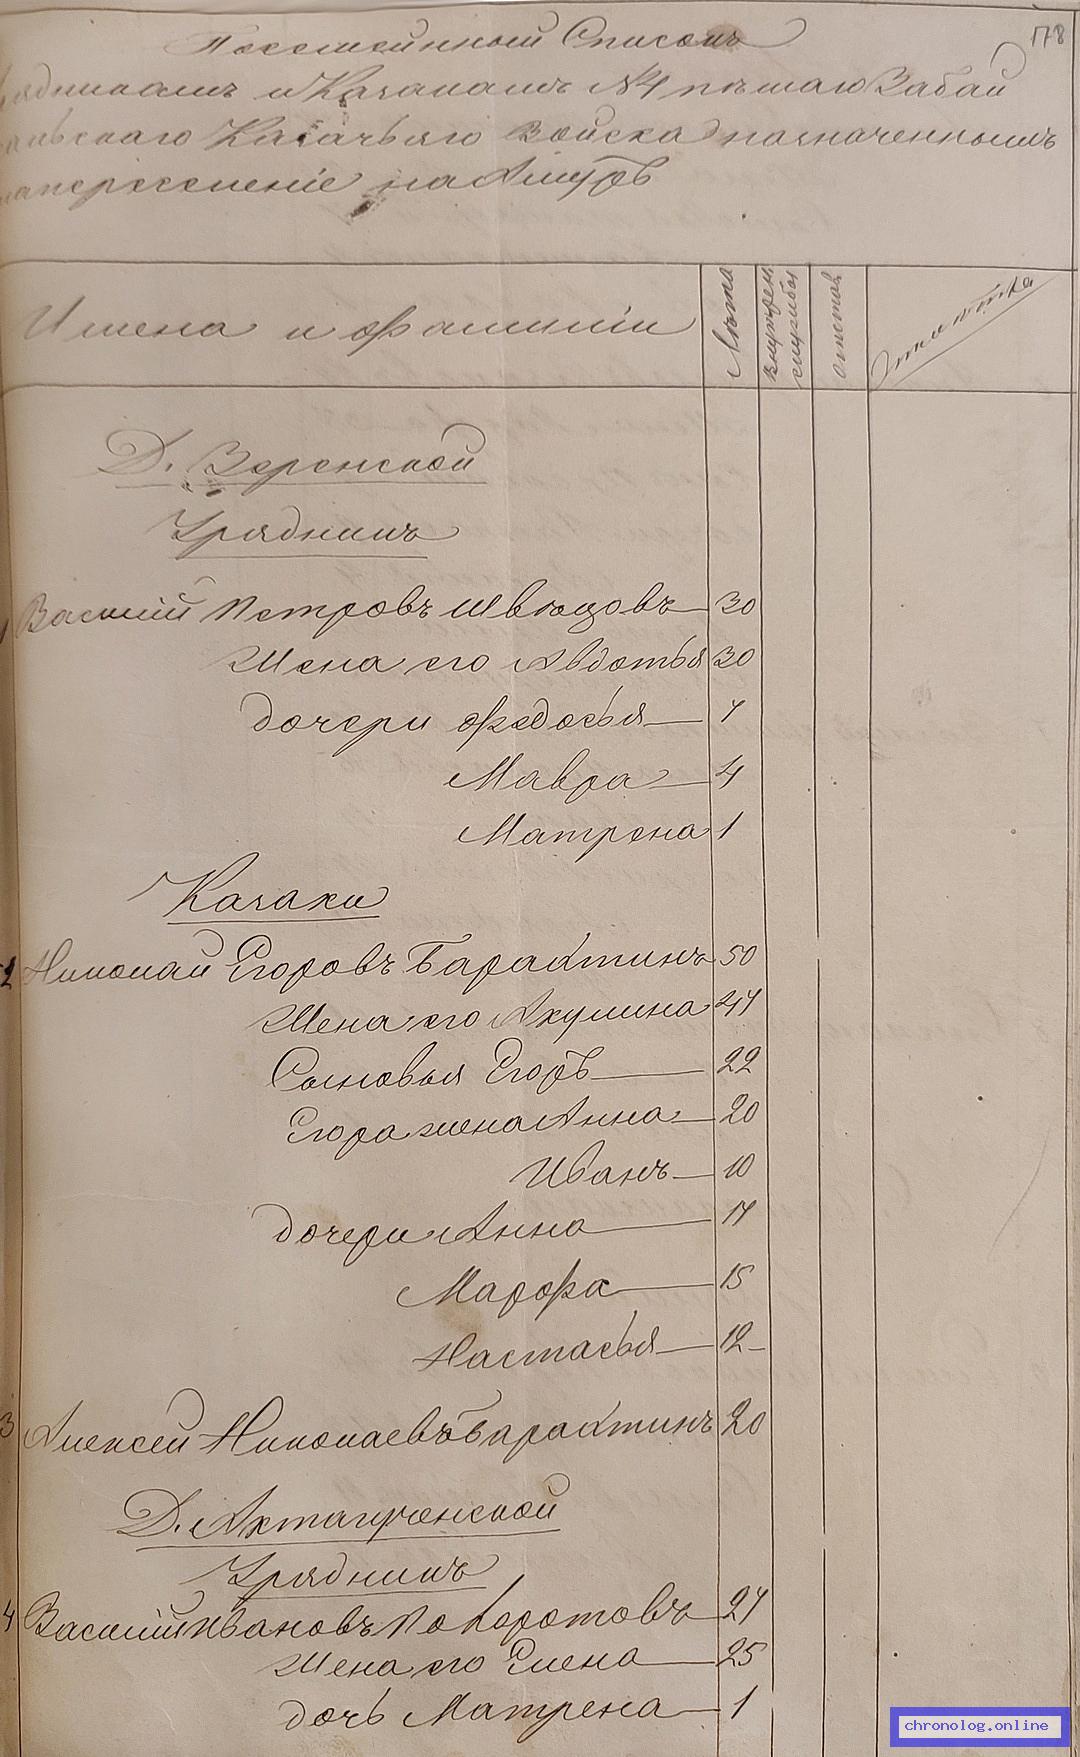 178
Посемейный Списокъ
рядникамъ и Казакамъ №4 пѣшаго Забай
альскаго Казачьяго Войска назначеннымъ
напереселеніе на Амуръ
Имена и фамиліи
Лѣта
внутрен. службы
отстав.
Отмѣтка
Д. Зеренской
Урядникъ
1 Василій Петровъ Швецовъ 30
Жена его Авдотья 30
дочери Федосья 7
Мавра 4
Матрена 1
Казаки
2 Николай Егоровъ Барахтинъ 50
Жена его Акулина 47
Сыновья Егоръ 22
Егора жена Анна 20
Иванъ 10
дочери Анна 17
Марфа 15
Настасья 12
3 Алексей Николаевъ Барахтинъ 20
Д.
Урядникъ
4 Василій Ивановъ 27
Жена его Елена 25
дочь Матрена 1
chronolog.online